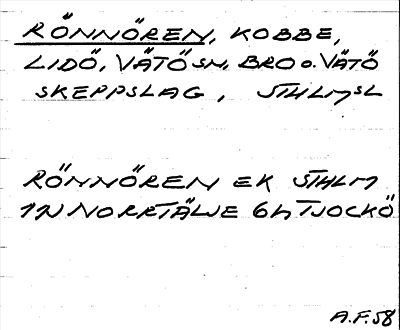 RÖNNÖREN, KOBBE,
LIDÖ, VÄTÖ SN, BRO O. VÄTÖ
SKEPPSLAG, STHLMSL
RÖNNÖREN EK STHLM
1N NORRTÄLJE 6h TJOCKÖ
A.F. 58